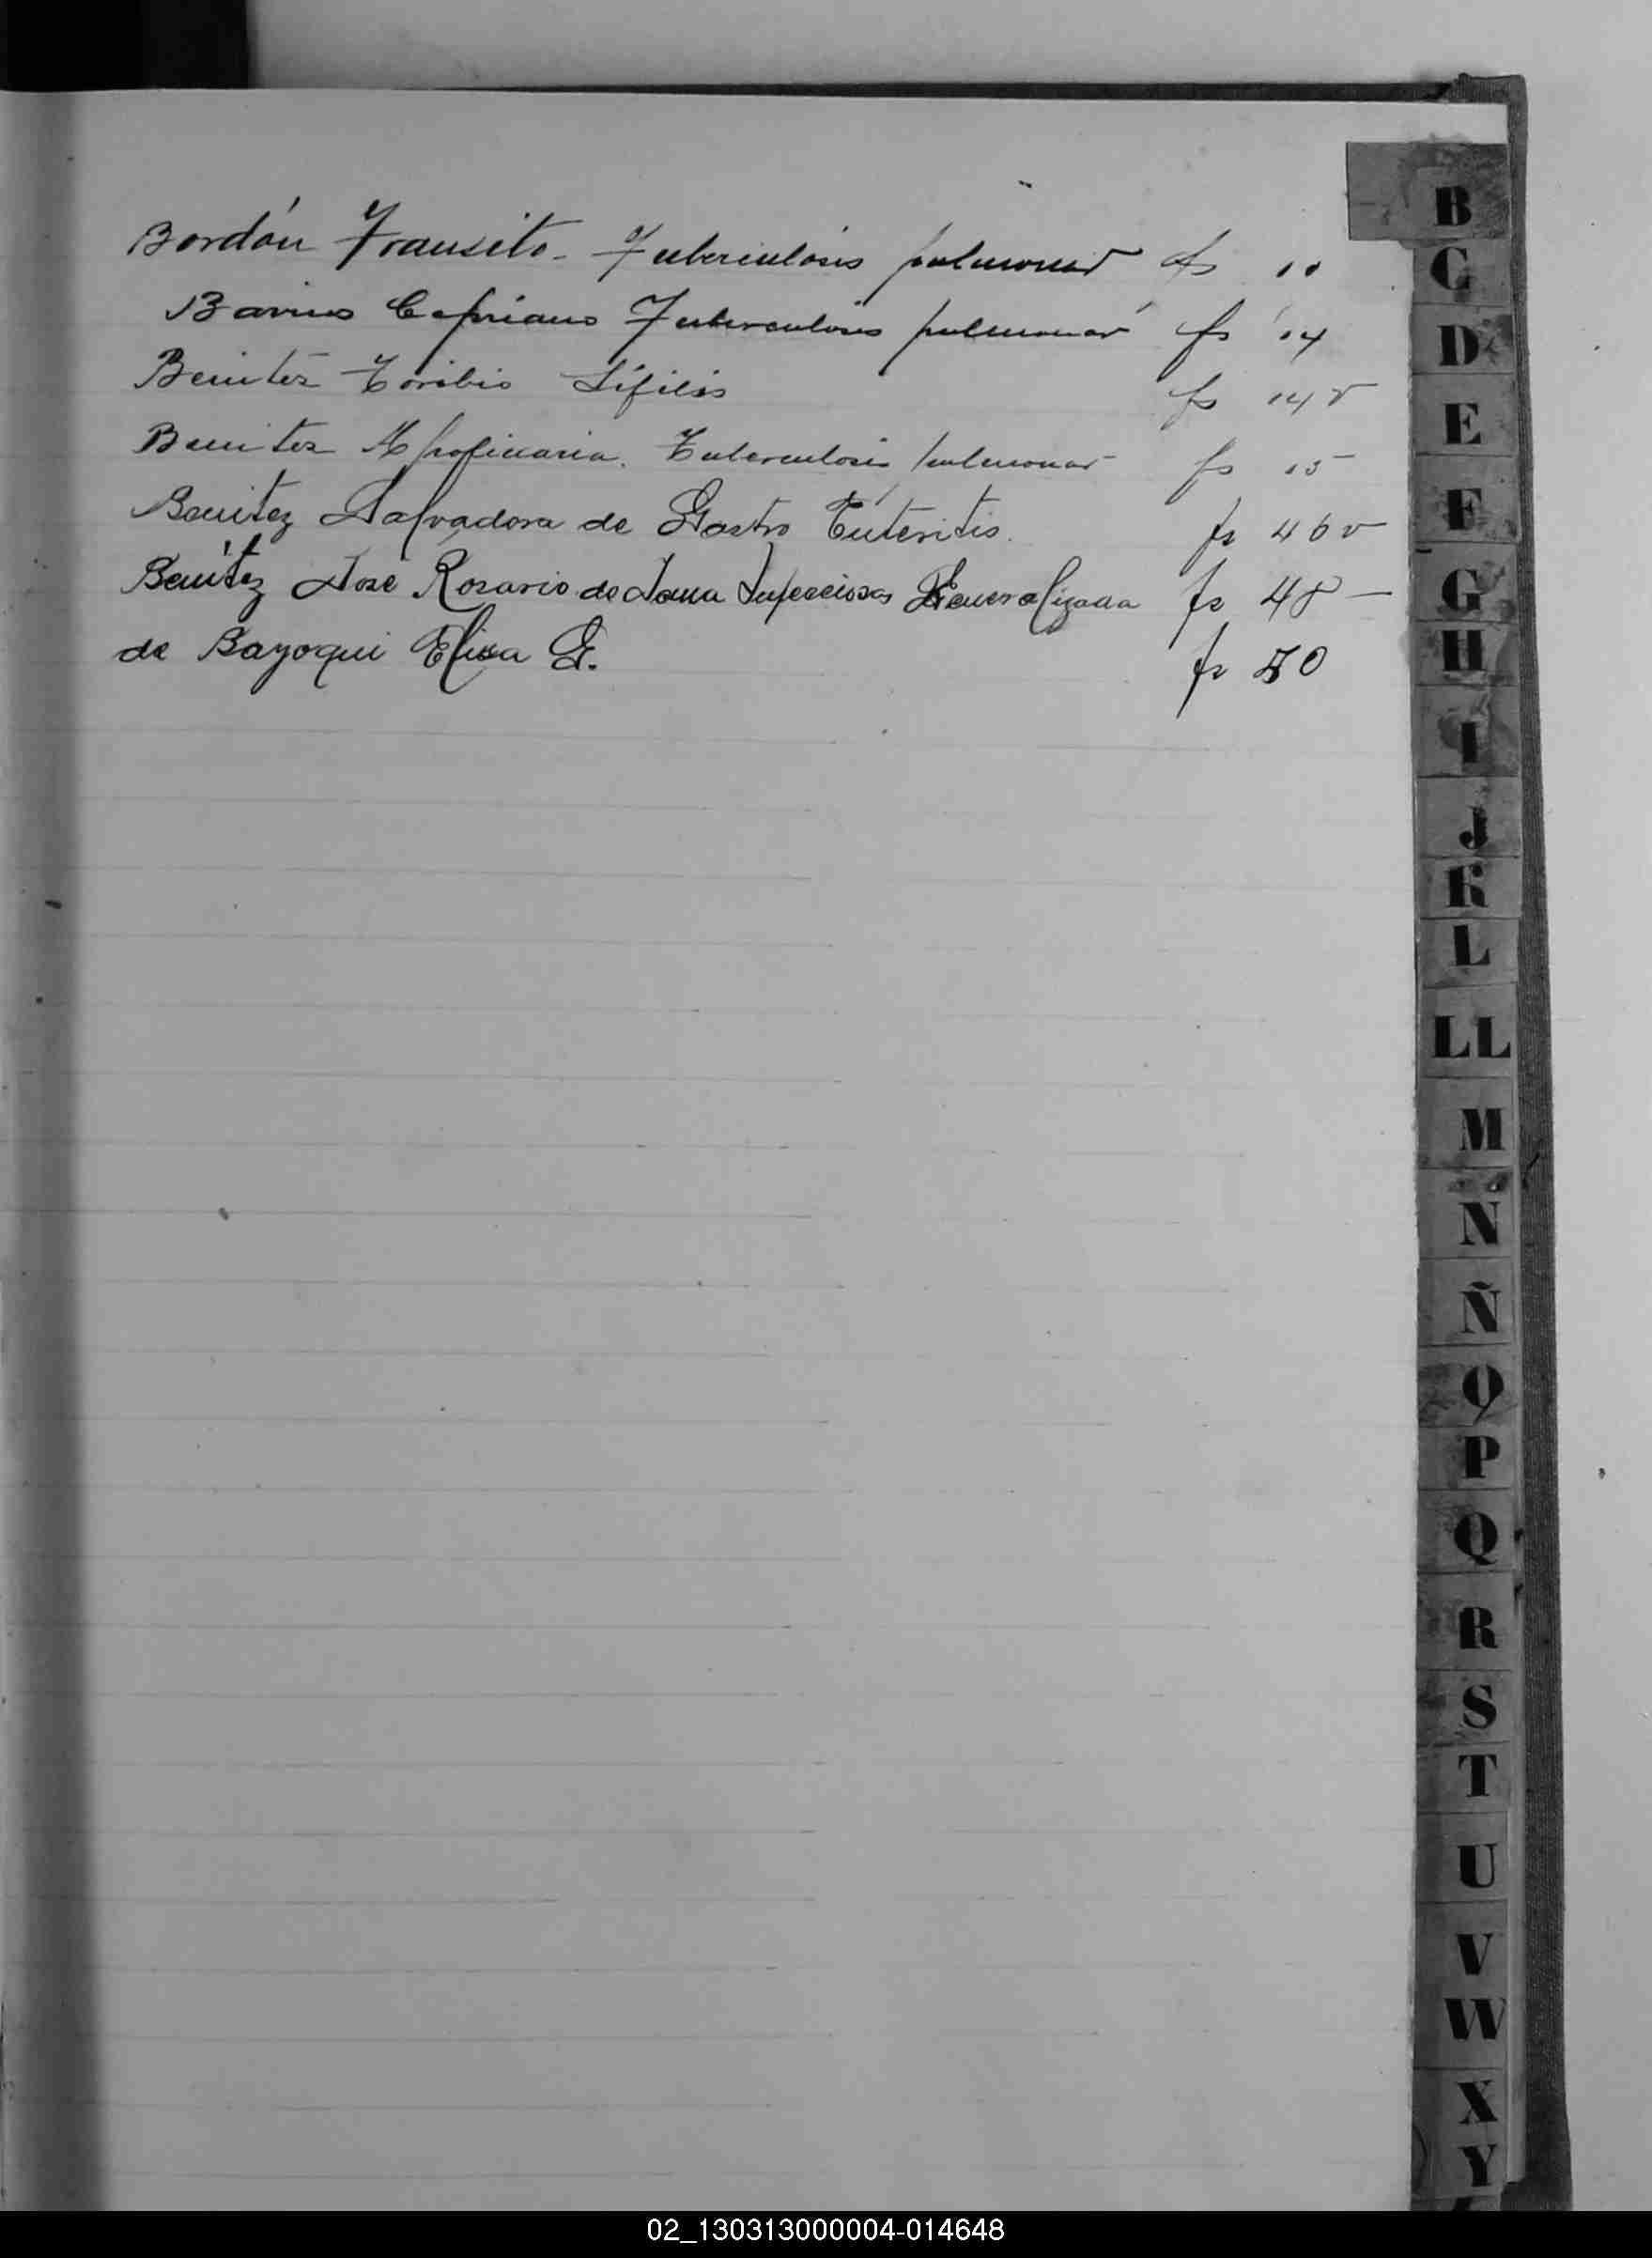 Bordón Transito - Tuberculosis pulmonar fs 10
Barrios Cipriano Tuberculosis pulmonar fs 14
Benitez Toribio Sífilis fs 14 v
Benitez Tuberculosis pulmonar fs 15
Benitez Salvadora de Gastro Enteritis. fs 46 v
Benítez José Rosario de Sarna Infecciosa Generalizada fs 48 —
de Bayoqui Elisa G. fs 50
B
C
D
E
F
G
H
I
J
K
L
LL
M
N
Ñ
O
P
Q
R
S
T
U
V
W
X
Y
02_130313000004-014648